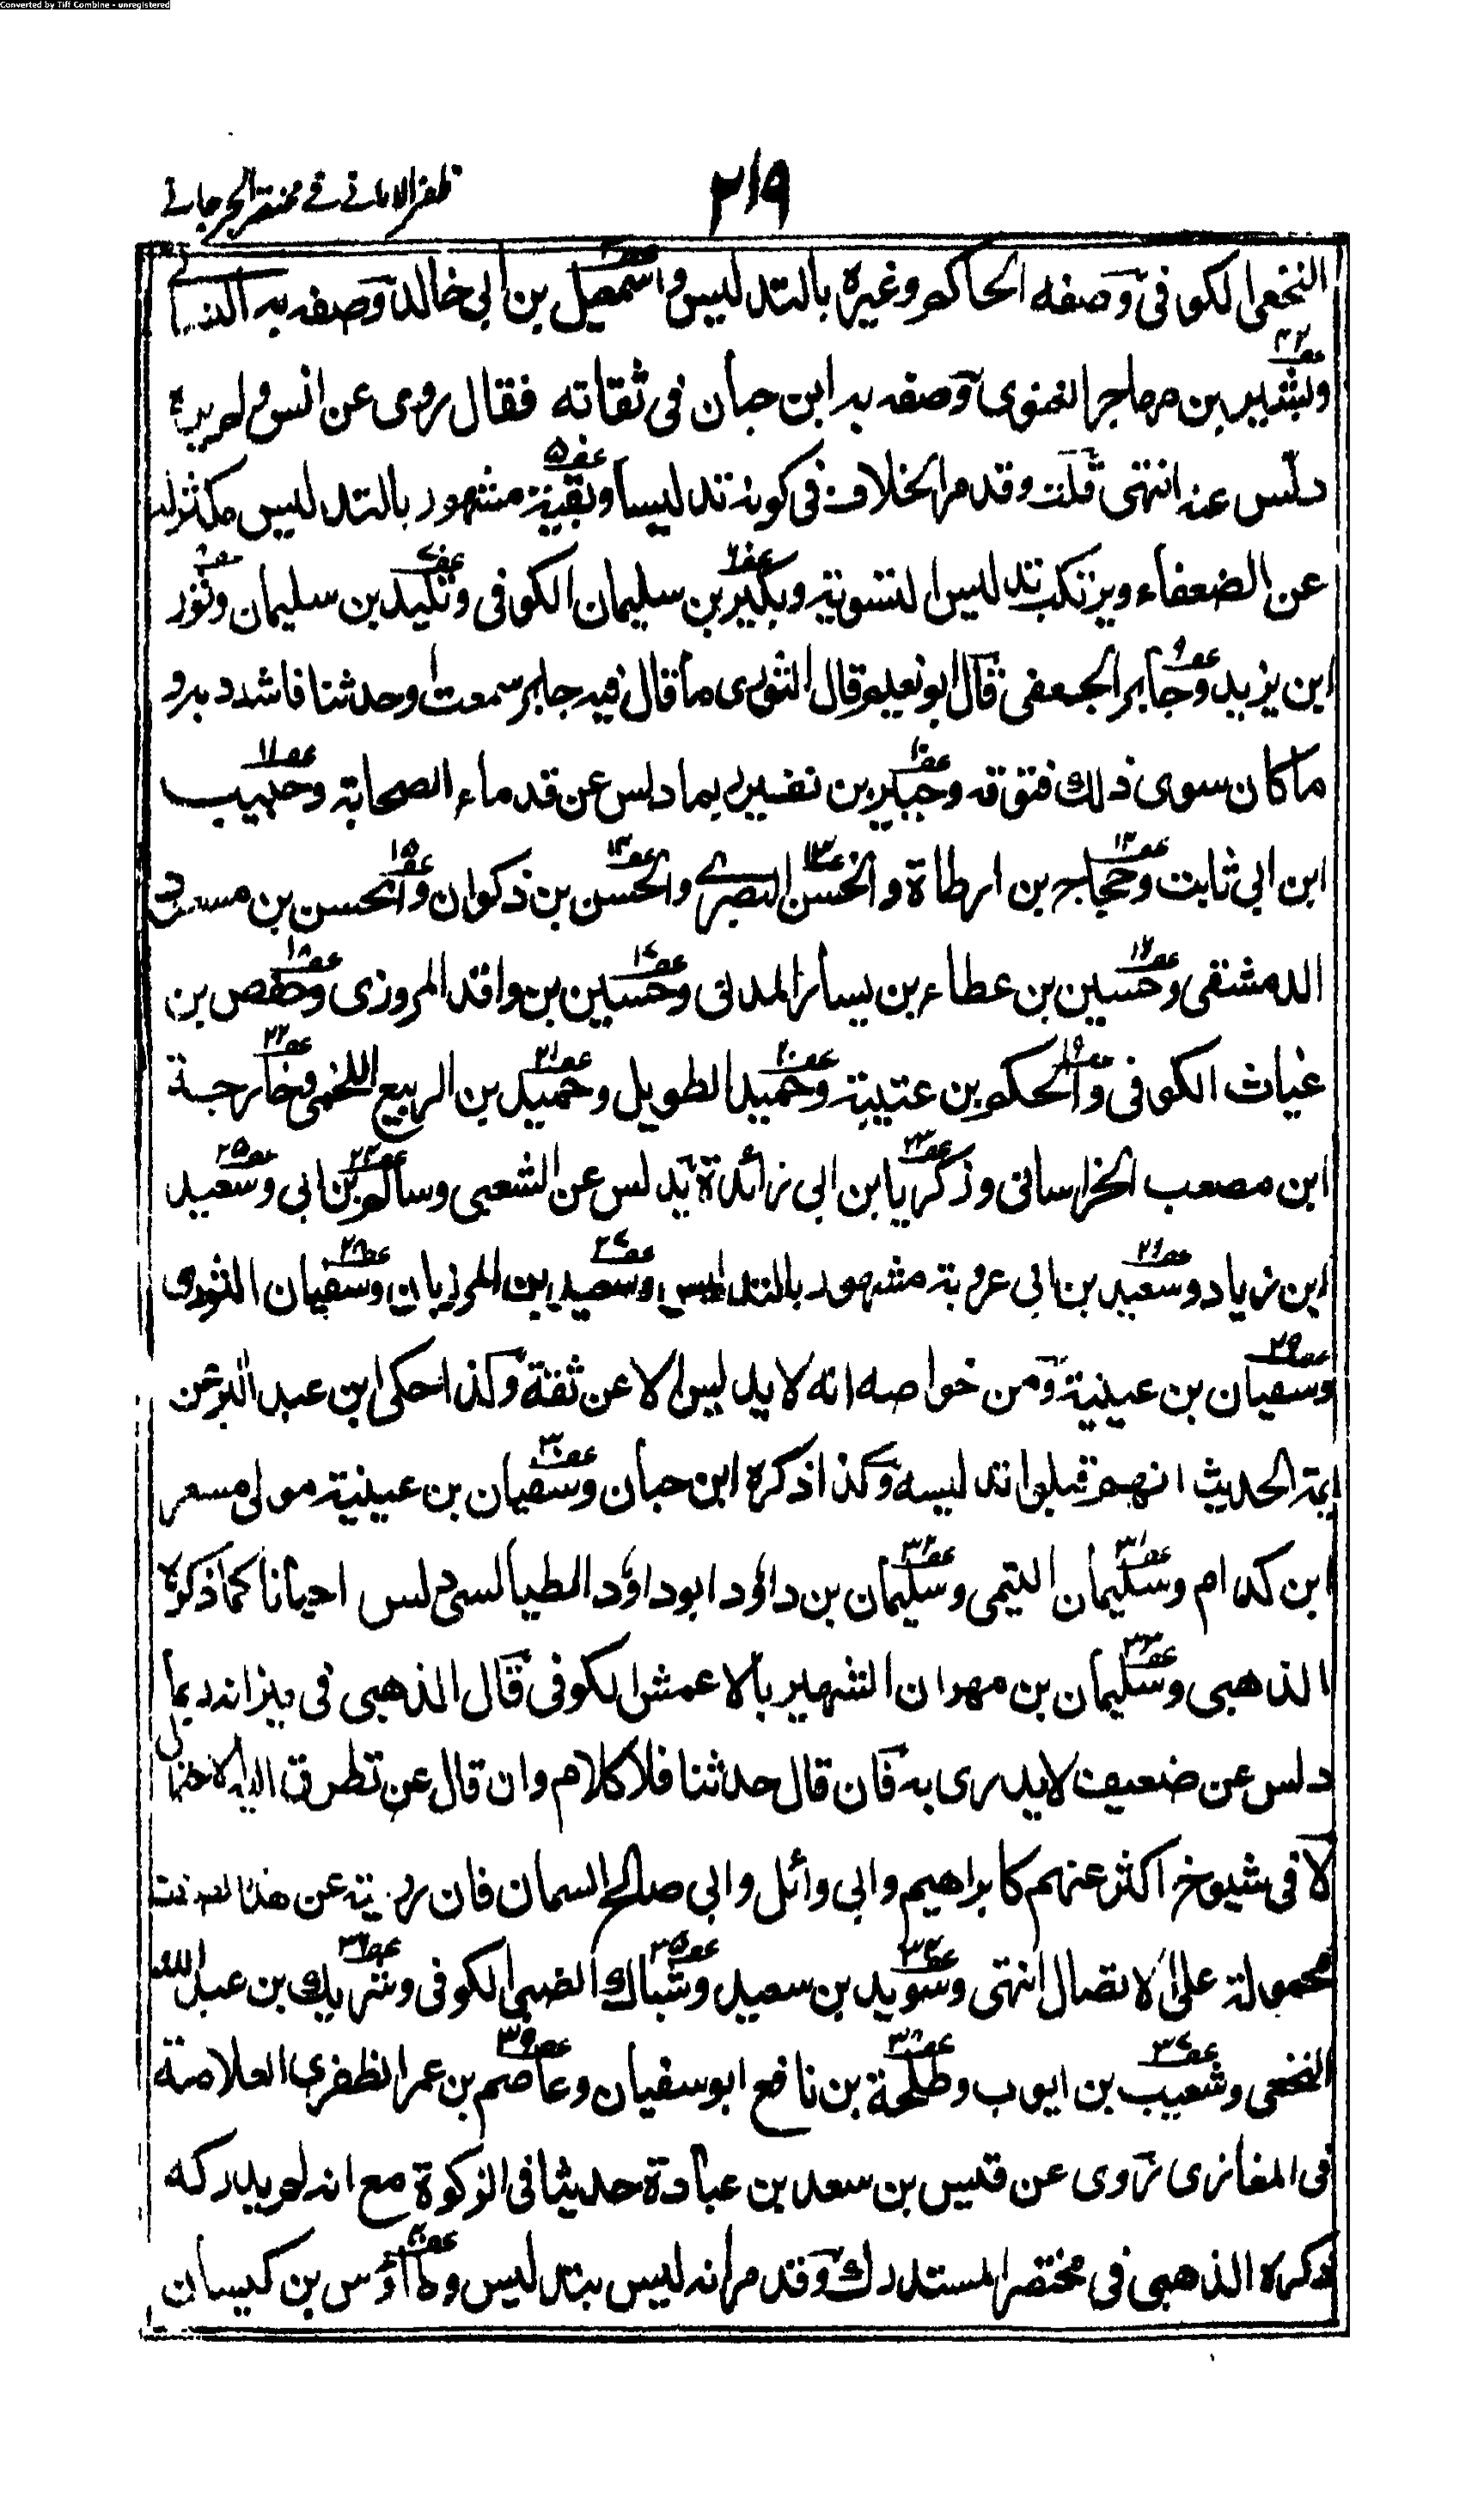 Converted by Tiff Combine - unregistered
۲۱۹
ظفر الامانے فے مختصر الجرجانے
النخعی الکوفی وصفه الحاکم وغیره بالتدلیس واسمعیل بن ابی خالد وصفه به النسائے
وبشیر بن مهاجر الغنوی وصفه به ابن حبان فی ثقاته فقال روی عن انس ولم یره
دلس عنه انتهی قلت وقد مر الخلاف فی کونه تدلیسا وبقیة مشهور بالتدلیس مکثر له
عن الضعفاء ویرتکب تدلیس التسویة وبکیر بن سلیمان الکوفی وتلید بن سلیمان وثور
ابن یزید وجابر الجعفی قال ابو نعیم قال الثوری ما قال فیه جابر سمعت او حدثنا فاشدد به و
ما کان سوی ذلك فتوقه وجبیر بن نفیر ربما دلس عن قدماء الصحابة وحبیب
ابن ابی ثابت وحجاج بن ارطاة والحسن البصرے والحسن بن ذکوان والحسن بن مسعود
الدمشقی وحسین بن عطاء بن یسار المدنی وحسین بن واقد المروزی وحفص بن
غیاث الکوفی والحکم بن عتیبة وحمید الطویل وحمید بن الربیع اللخمی وخارجة
ابن مصعب الخراسانی وذکریا بن ابی زائدة یدلس عن الشعبی وسالم بن ابی وسعید
ابن زیاد وسعید بن ابی عروبة مشهور بالتدلیس وسعید بن المرزبان وسفیان الثوری
وسفیان بن عیینة ومن خواصه انه لا یدلیس الا عن ثقة وکذا حکی ابن عبد البر عن
ایمة الحدیث انهم قبلوا تدلیسه وکذا ذکره ابن حبان وسفیان بن عیینة مولی مسعر
ابن کدام وسلیمان التیمی وسلیمان بن داؤد ابو داؤد الطیالسی دلس احیانا کما ذکره
الذهبی وسلیمان بن مهران الشهیر بالاعمش الکوفی قال الذهبی فی میزانه ربما
دلس عن ضعیف لا یدری به فان قال حدثنا فلا کلام وان قال عن تطرق الیه الاحتمال
الا فی شیوخ اکثر عنهم کابراهیم وابی وائل وابی صالح السمان فان روایته عن هذا الصنف
محمولة علی الاتصال انتهی وسوید بن سعید وشباك الضبی الکوفی وشریك بن عبد الله
النخعی وشعیب بن ایوب وطلحة بن نافع ابو سفیان وعاصم بن عمر الظفری العلامة
فی المغازی روی عن قیس بن سعد بن عبادة حدیثا فی الزکوة مع انه لم یدرکه
ذکره الذهبی فی مختصر المستدرك وقد مر انه لیس بتدلیس وطاؤس بن کیسان